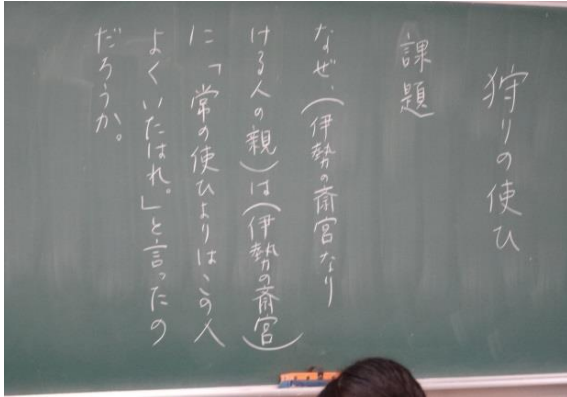 狩りの使ひ
課題
なぜ、(伊勢の斎宮なり
ける人の親)は(伊勢の斎宮)
に「常の使ひよりはこの人
よくいたはれ。」と言ったの
だろうか。